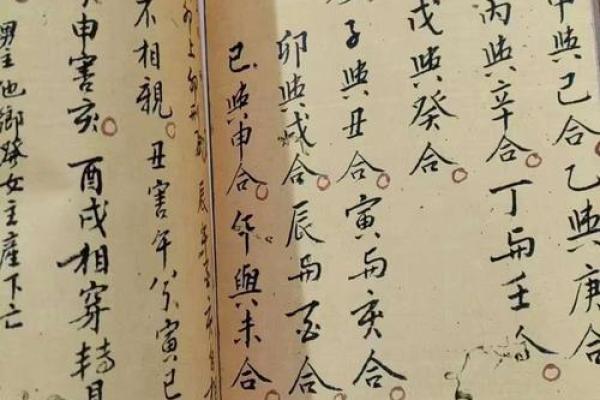 甲與己合。乙與庚合
丙與辛合。丁与壬合。
戊與癸合。
子與丑合。寅与亥合。
卯與戌合。辰与酉合
巳與申合。午與未合。
不相親。丑害午兮寅巳
申害亥。酉戌相穿
男主他鄉發女主產下亡